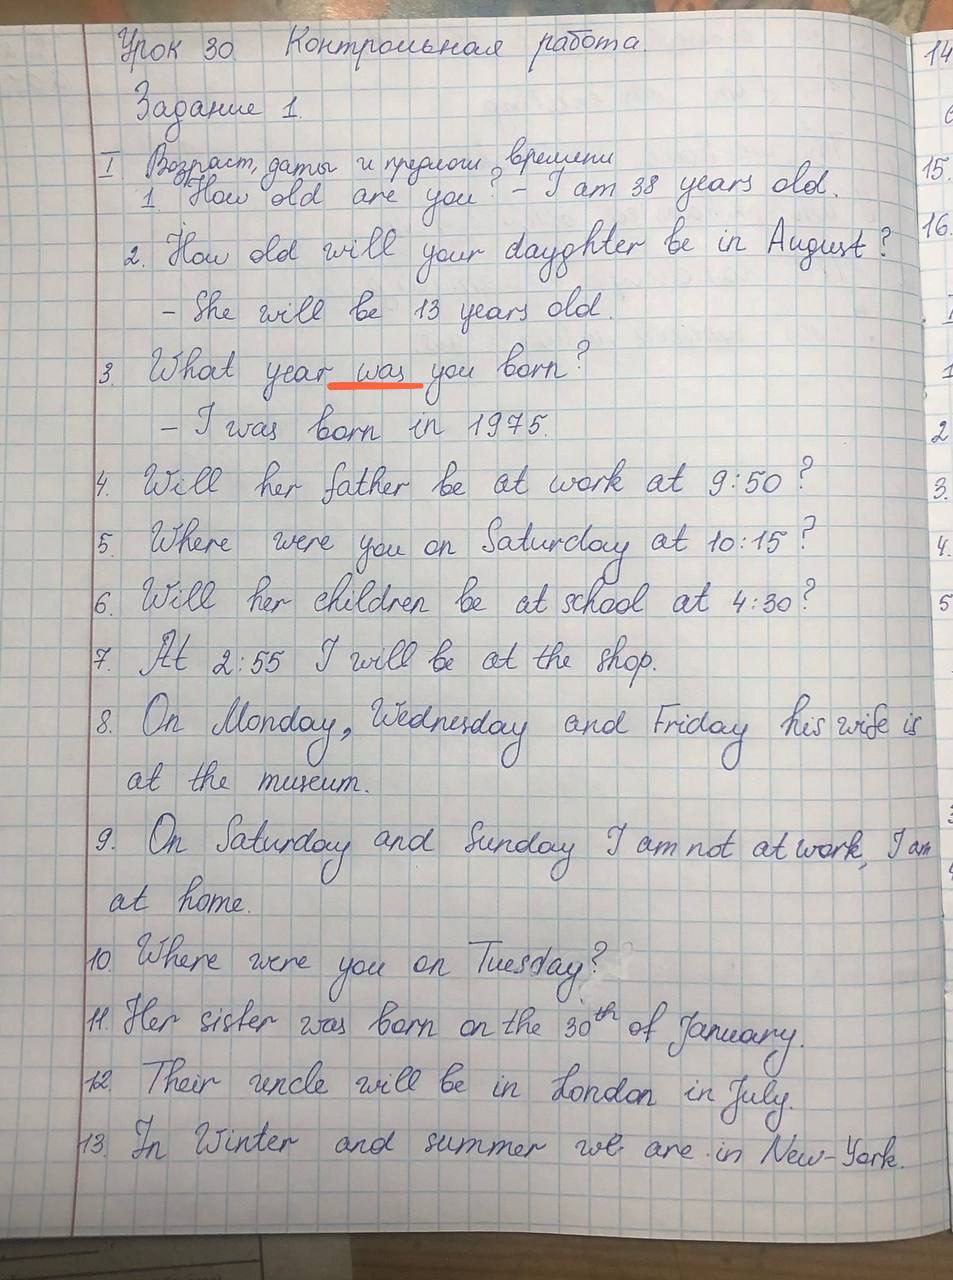 Урок 30 Контрольная работа.
Задание 1.
I Возраст, даты и предлоги времени
1. How old are you? - I am 38 years old.
2. How old will your dayghter be in August?
- She will be 13 years old.
3. What year was you born?
- I was born in 1975.
4. Will her father be at work at 9:50?
5. Where were you on Saturday at 10:15?
6. Will her children be at school at 4:30?
7. At 2:55 I will be at the shop.
8. On Monday, Wednesday and Friday his wife is
at the museum.
9. On Saturday and Sunday I am not at work, I am
at home.
10. Where were you on Tuesday?
11. Her sister was born on the 30th of January.
12. Their uncle will be in London in July.
13. In Winter and summer we are in New-York.
14
15.
16.
I
1
2
3.
4.
5